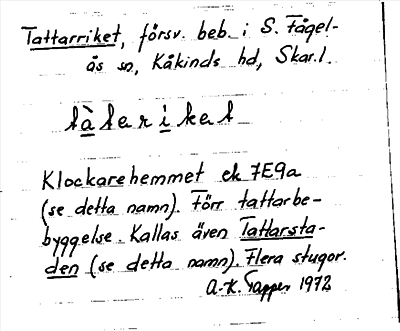 Tattarriket, försv. beb. i S. Fågel-
ås sn, Kåkinds hd, Skar.l.
tàterikat
Klockarehemmet ek 7E9a
(se detta namn). Förr tattarbe-
byggelse. Kallas även Tattarsta-
den (se detta namn). Flera stugor.
A.-K. Tapper 1972